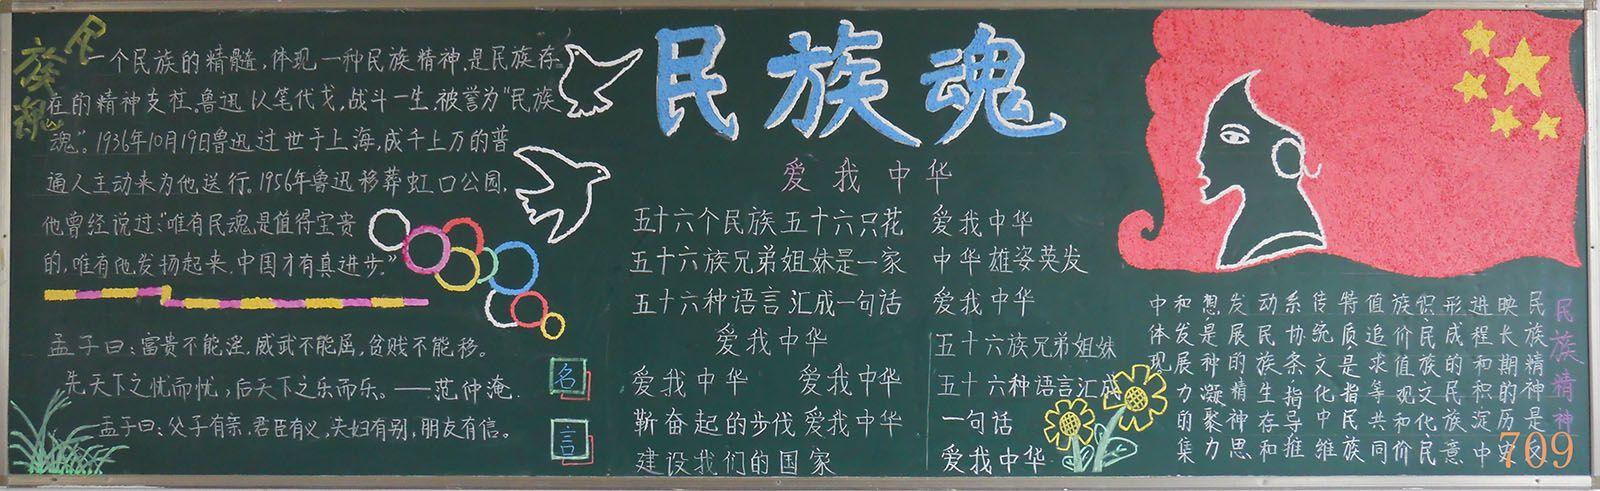 民族魂
一个民族的精髓,体现一种民族精神.是民族存
在的精神支柱。鲁迅以笔代戈,战斗一生.被誉为“民族
魂”。1936年10月19日鲁迅过世于上海,成千上万的普
通人主动来为他送行。1956年鲁迅移葬虹口公园.
他曾经说过:“唯有民魂是值得宝贵
的,唯有他发扬起来.中国才有真进步.”
孟子曰:富贵不能淫,威武不能屈,贫贱不能移。
先天下之忧而忧,后天下之乐而乐。——范仲淹.
孟子曰:父子有亲.君臣有义,夫妇有别,朋友有信。
名
言
民族魂
爱我中华
五十六个民族五十六只花
五十六族兄弟姐妹是一家
五十六种语言汇成一句话
爱我中华
爱我中华 爱我中华
靳奋起的步伐爱我中华
建设我们的国家
爱我中华
中华雄姿英发
爱我中华
五十六族兄弟姐妹
五十六种语言汇成
一句话
爱我中华
民族精神
民族精神是反
映长期的历史
进程和积淀中
形成的民族意
识民族文化民
族价值观和价
值追求等共同
特质是指民族
传统文化中维
系协条指导推
动民族生存和
发展的精神思
想是神凝聚力
和发展力的集
中体现
709